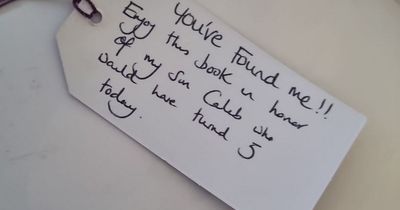 You've Found me!!
Enjoy this book in honor
of my son Caleb who
would have turnd 5
today.